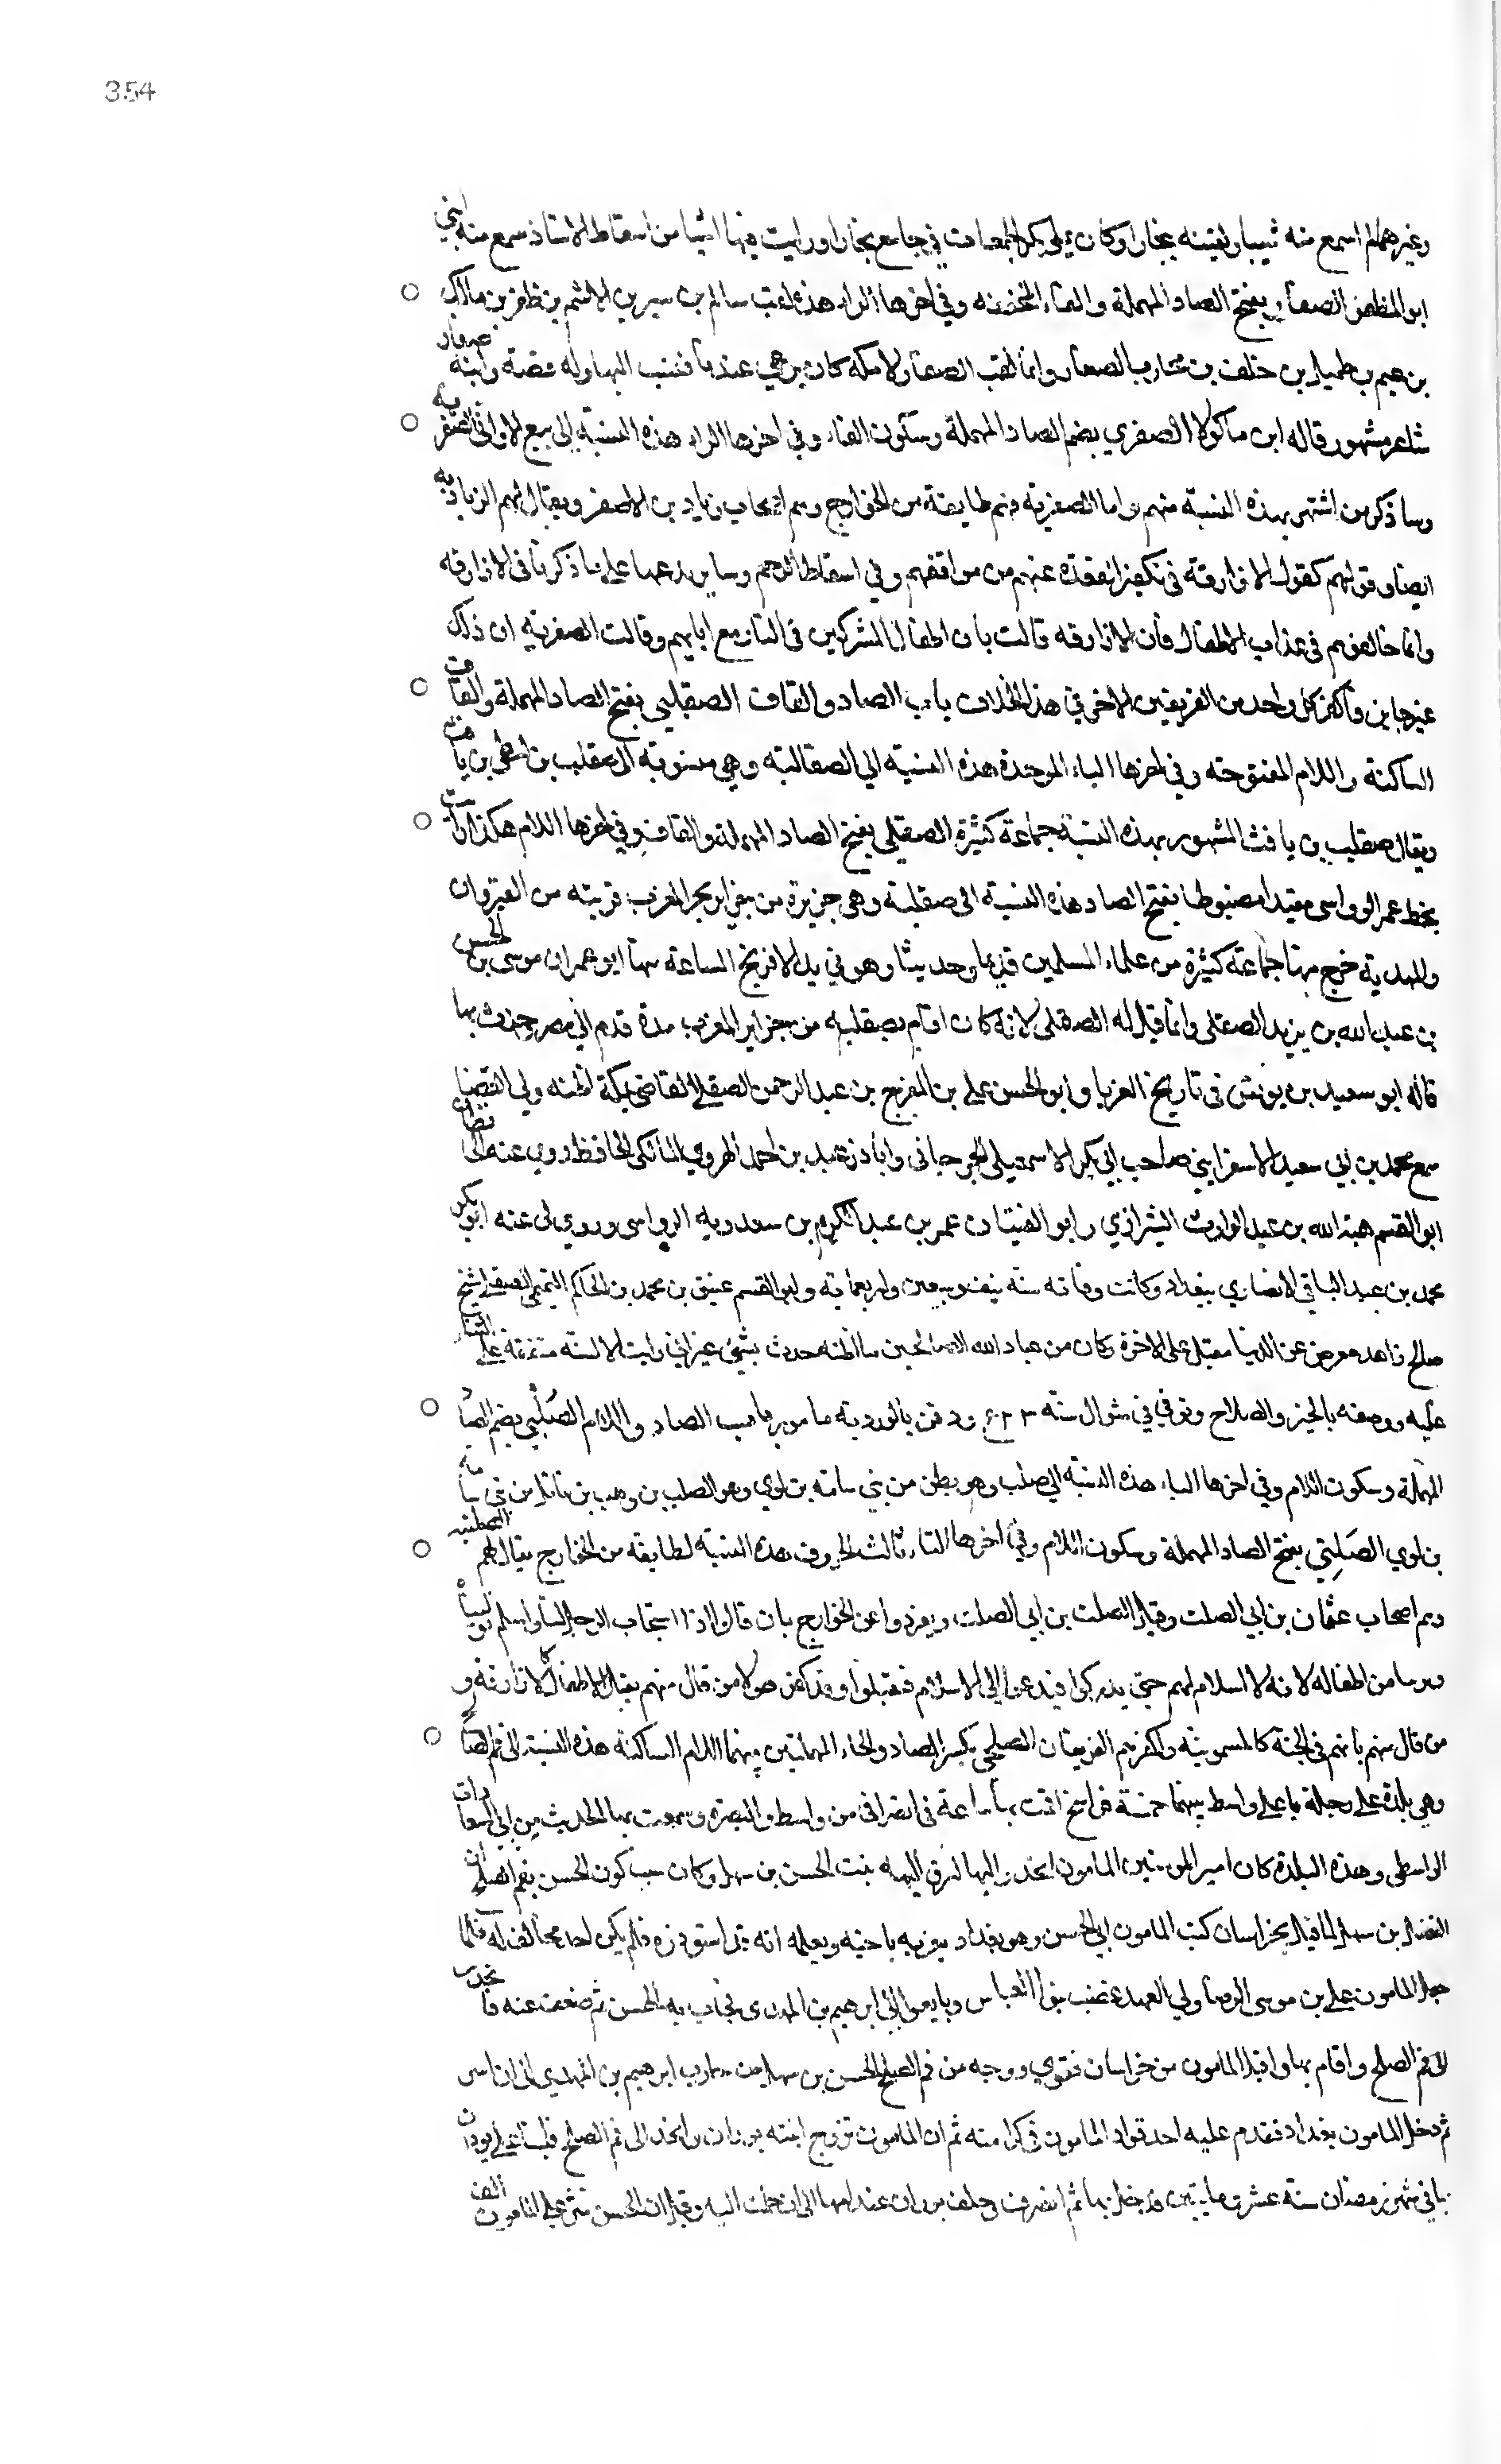 354
وغيرهما لم اسمع منه شيبا ولقيته ببخارا وكان يملى بكر الجمعات في جامع بخارا ورايت فيها اشيا من اسقاط الاستاذ سمع منه ابني
ابو المظفر الصعار بفتح الصاد المهملة والفاء المخففه وفي اخرها الراء هذه لقب سالم بن سير بن الاشم بن ظفر بن مالك
بن خلف بن محارب الصعار وانما لقب الصعار لامكه كان يرعى عندها فنسب اليها وله قصة وابنه صعوار
شاعر مشهور قاله ابن ماكولا الصفري بضم الصاد المهملة وسكون الفاء وفي اخرها الراء هذه النسبة الى بيع الاواني الصفريه
وساذكر من اشتهر بهذه النسبة منهم واما الصفرية فهم طايفة من الخوارج وهم اصحاب زياد بن الاصفر ويقال لهم الزياديه
ايضا وقولهم كقول الازارقة في تكفير القعدة عنهم من موافقهم وفي اسقاط الرجم وساير بدعها على ما ذكرنا في الازارقه
وانما خالفوهم في عذاب الاطفال فان الازارقه قالت بان اطفال المشركين في النار مع ابايهم وقالت الصفريه ان ذلك
غير جايز وكفر كل واحد من الفريقين الاخر في هذا الخلاف باب الصاد والقاف الصقلبي بفتح الصاد المهملة والقاف
الساكنة واللام المفتوحه وفي اخرها الباء الموحدة هذه النسبة الي الصقالبه وهي منسوبة الى صقلب بن لنطى بن يافث
ويقال صقلب بن يافث المشهور بهذه النسبة جماعة كثيرة الصقلي بفتح الصاد المهملة والقاف وفي اخرها اللام هكذا رايت
بخط عمر الرواسى مقيدا مضبوطا بفتح الصاد هذه النسبة الى صقلية وهي جزيرة من جزاير بحر المغرب قريبة من القيروان
والمهدية خرج منها جماعة كثيرة من علماء المسلمين قديما وحديثا وهو في يد الافرنج الساعة منها ابو عمران موسى بن الحسن
بن عبد الله بن يزيد الصقلى وانما قيل له الصقلى لانه كان اقام بصقليه من جزاير المغرب مدة قدم الى مصر وحدث بها
قاله ابو سعيد بن يونس في تاريخ الغربا وابو الحسن على بن المفرج بن عبد الرحمن الصقلي القاضي بمكة اظنه ولي القضا
سمع محمد بن ابي سعيد الاسفرايني صاحب ابي بكر الاسمعيلى الجرجاني وابا ذر عبد بن احمد الهروي المالكي الحافظ روى عنه الحافظان
ابو القسم هبة الله بن عبد الوارث الشيرازي وابو الفتيان عمر بن عبد الكريم بن سعدويه الرواسى وروى لي عنه ابو بكر
محمد بن عبد الباقي الانصاري ببغداد وكانت وفاته سنة نيف وسبعين واربعماية وابو القسم عتيق بن محمد بن الحاكم التميمي الصقلي شيخ
صالح زاهد معرض عن الدنيا مقبل على الاخرة وكان من عباد الله الصالحين ما اظنه حدث بشيء غير اني رايت الالسنه متفقة على الثناء
عليه ووصفه بالخير والصلاح وتوفي في شوال سنة ٤٢٣ ودفن بالوردية باب الصاد واللام الصُلْبي بضم الصاد
المهملة وسكون اللام وفي اخرها الباء هذه النسبة الى صلب وهو بطن من بني سامة بن لوي وهو الصلب بن وهب بن ناقل من بني سامه
بن لوي الصَلْتي بفتح الصاد المهملة وسكون اللام وفي اخرها التاء ثالث الحروف هذه النسبة لطايفة من الخوارج يقال لهم الصلتيه
وهم اصحاب عثمان بن ابي الصلت وقيل الصلت بن ابي الصلت وبفردوا عن الخوارج بان قالوا اذا استجاب الرجل لنا واسلم توليناه
وبرينا من اطفاله لانه لا اسلام لهم حتى يدركوا فيدعوا الى الاسلام فيقبلوا وقد كفر هولا من قال منهم بقتل الاطفال كالازارقة و
من قال منهم بانهم في الجنة كالميمونية واكفرهم الفريقان الصلحي بكسر الصاد والحاء المهملتين بينهما اللام الساكنة هذه النسبة الى فم الصلح
وهي بلدة على دجلة باعلى واسط بينهما خمسة فراسخ اقت بها ساعة في انصرافي من واسط والبصره وسمعت بها الحديث من ابي السعادات
الواسطي وهذه البلدة كان امير المومنين المامون انحدر اليها لزفاف ابنه بنت الحسن بن سهل وكان سبب كون الحسن بفم الصلح ان
الفضل بن سهل لما قتل بخراسان كتب المامون الى الحسن وهو ببغداد يعزيه باخيه ويعلمه انه قد استوزره فلم يكن احد مخالفا له فلما
جعل المامون علي بن موسى الرضا ولي العهد غضب بنو العباس وبايعوا ابرهيم بن المهدى فحاربه الحسن ثم ضعف عنه فانحدر
الى فم الصلح واقام بها واقبل المامون من خراسان فقوي ووجه من فم الصلح الحسن بن سهل من حارب ابرهيم بن المهدي الى ان
ثم دخل المامون بغداد فقدم عليه احد قواد المامون ثم ان المامون تزوج ابنته بوران وانحدر الى فم الصلح فلبنا على بوران
في شهر رمضان سنة عشر ومايتين فدخل بها ثم انصرف وخلف بوران عند امها الى ان حملت اليه وقيل ان الحسن نثر على المامون الف